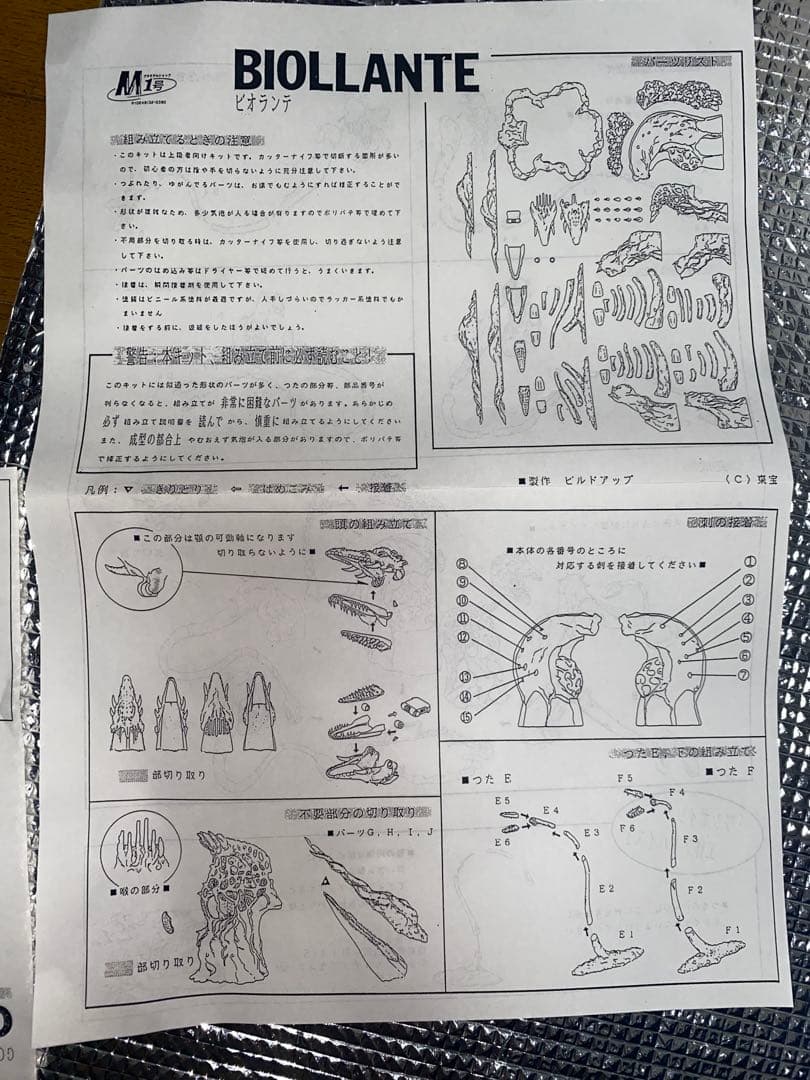 M1号
BIOLLANTE
ビオランテ
パーツリスト
組み立てるときの注意
・このキットは上段者向けキットです。カッターナイフ等で切断する箇所が多い
ので、初心者の方は指や手を切らないように充分注意して下さい。
・つぶれたり、ゆがんでるパーツは、お湯でもむようにすれば修正することがで
きます。
・形状が複雑なため、多少気泡が入る場合が有りますのでポリパテ等で埋めて下
さい。
・不用部分を切り取る時は、カッターナイフ等を使用し、切り過ぎないよう注意
して下さい。
・パーツのはめ込み等はドライヤー等で暖めて行うと、うまくいきます。
・接着は、瞬間接着剤を使用して下さい。
・塗装はビニール系塗料が最適ですが、入手しづらいのでラッカー系塗料でもか
まいません
・接着をする前に、仮組をしたほうがよいでしょう。
警告：本キット、組み立て前に必ず読むこと!
このキットには似通った形状のパーツが多く、つたの部分等、部品番号が
判らなくなると、組み立てが 非常に困難なパーツ があります。あらかじめ
必ず 組み立て説明書を 読んで から、慎重に 組み立てるようにしてください
また、成型の都合上 やむおえず気泡が入る部分がありますので、ポリパテ等
で修正するようにしてください。
凡例：▽ きりとり ⇦ はめこみ ← 接着
■製作 ビルドアップ
（C）東宝
頭の組み立て
■この部分は顎の可動軸になります
切り取らないように■
部切り取り
刺の接着
■本体の各番号のところに
対応する刺を接着してください■
⑧
⑨
⑩
⑪
⑫
⑬
⑭
⑮
①
②
③
④
⑤
⑥
⑦
不要部分の切り取り
■パーツG，H，I，J
■喉の部分■
部切り取り
つたE，Fの組み立て
■つた E
E5
E4
E6
E3
E2
E1
■つた F
F5
F4
F6
F3
F2
F1